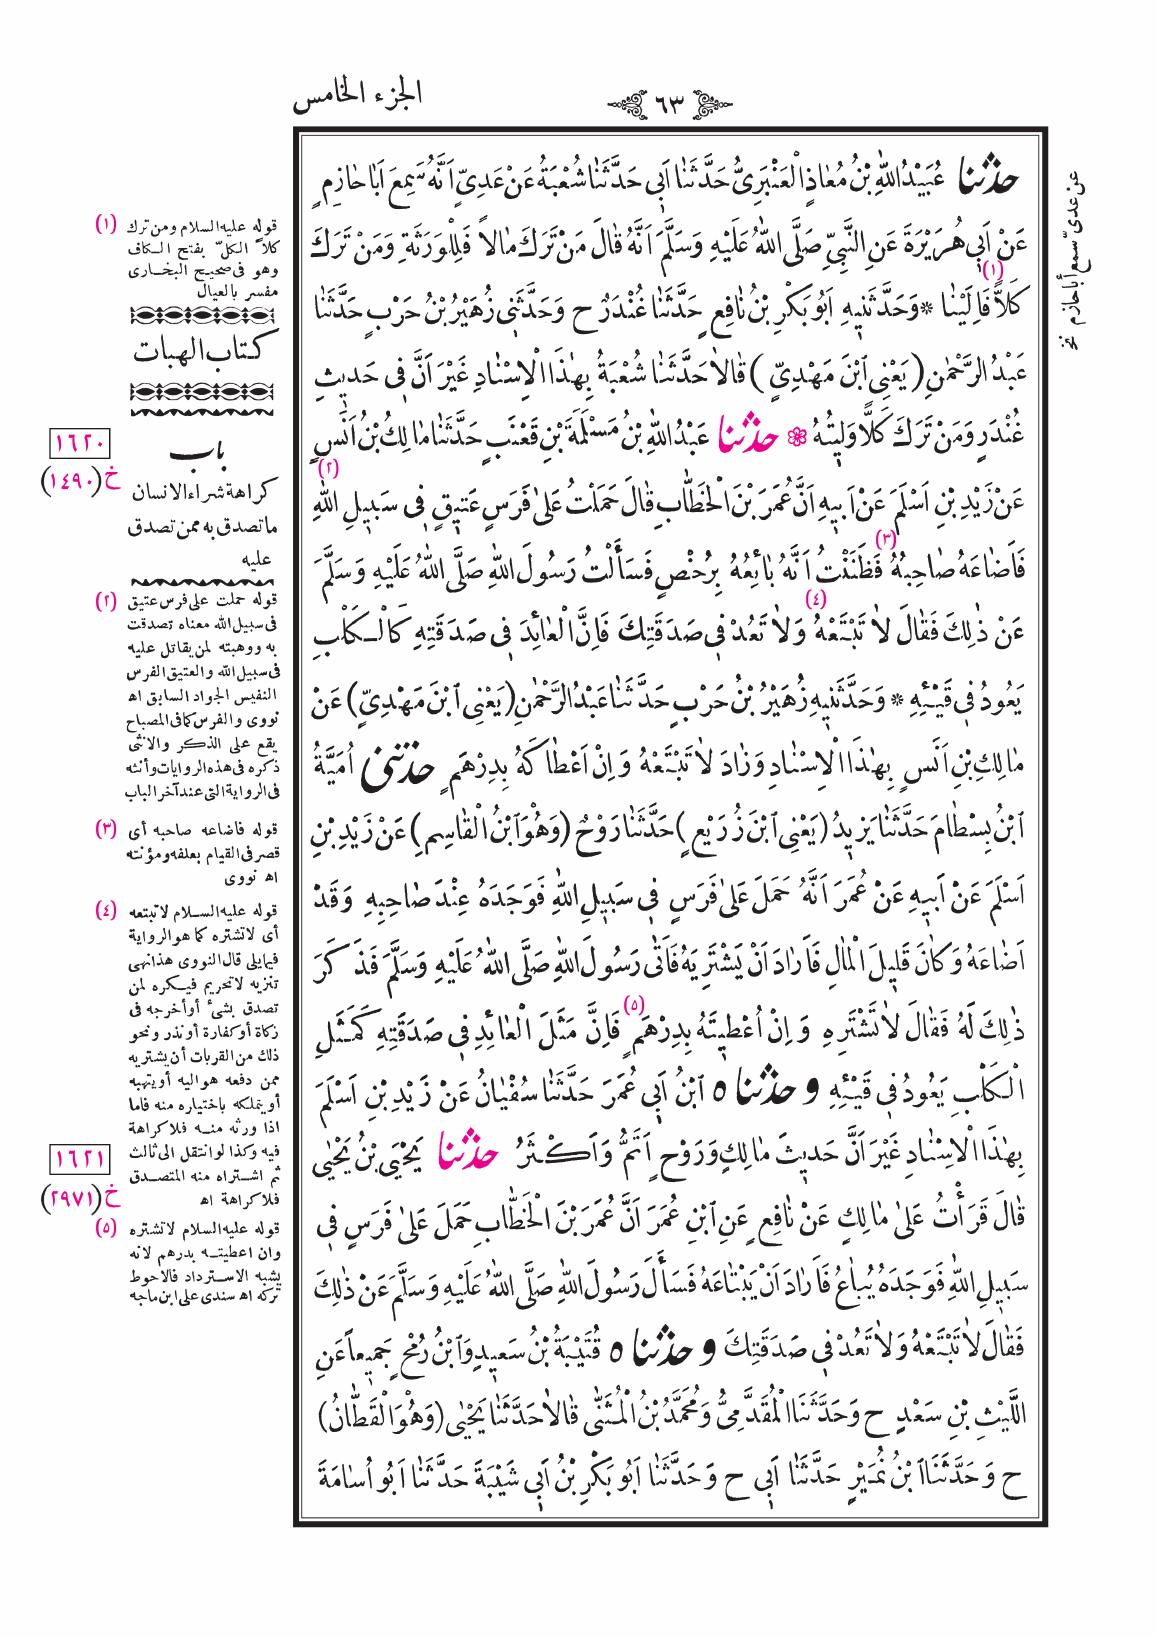 الجزء الخامس
٦٣
حدثنا عُبَيْدُ اللهِ بْنُ مُعَاذٍ الْعَنْبَرِيُّ حَدَّثَنَا اَبِي حَدَّثَنَا شُعْبَةُ عَنْ عَدِيٍّ اَنَّهُ سَمِعَ اَبَا حَازِمٍ
عَنْ اَبِي هُرَيْرَةَ عَنِ النَّبِيِّ صَلَّى اللهُ عَلَيْهِ وَسَلَّمَ اَنَّهُ قَالَ مَنْ تَرَكَ مَالاً فَلِلْوَرَثَةِ وَمَنْ تَرَكَ
كَلاًّ (١) فَاِلَيْنَا * وَحَدَّثَنِيهِ اَبُو بَكْرِ بْنُ نَافِعٍ حَدَّثَنَا غُنْدَرٌ ح وَحَدَّثَنِي زُهَيْرُ بْنُ حَرْبٍ حَدَّثَنَا
عَبْدُ الرَّحْمٰنِ (يَعْنِي ابْنَ مَهْدِيٍّ) قَالاَ حَدَّثَنَا شُعْبَةُ بِهٰذَا الْاِسْنَادِ غَيْرَ اَنَّ فِي حَدِيثِ
غُنْدَرٍ وَمَنْ تَرَكَ كَلاًّ وَلِيتُهُ * حدثنا عَبْدُ اللهِ بْنُ مَسْلَمَةَ بْنِ قَعْنَبٍ حَدَّثَنَا مَالِكُ بْنُ اَنَسٍ
عَنْ زَيْدِ بْنِ اَسْلَمَ عَنْ اَبِيهِ اَنَّ عُمَرَ بْنَ الْخَطَّابِ قَالَ حَمَلْتُ عَلىٰ فَرَسٍ عَتِيقٍ فِي سَبِيلِ اللهِ (٢)
فَاَضَاعَهُ صَاحِبُهُ (٣) فَظَنَنْتُ اَنَّهُ بَائِعُهُ بِرُخْصٍ فَسَأَلْتُ رَسُولَ اللهِ صَلَّى اللهُ عَلَيْهِ وَسَلَّمَ
عَنْ ذٰلِكَ فَقَالَ لاَ تَبْتَعْهُ (٤) وَلاَ تَعُدْ فِي صَدَقَتِكَ فَاِنَّ الْعَائِدَ فِي صَدَقَتِهِ كَالْكَلْبِ
يَعُودُ فِي قَيْئِهِ * وَحَدَّثَنِيهِ زُهَيْرُ بْنُ حَرْبٍ حَدَّثَنَا عَبْدُ الرَّحْمٰنِ (يَعْنِي ابْنَ مَهْدِيٍّ) عَنْ
مَالِكِ بْنِ اَنَسٍ بِهٰذَا الْاِسْنَادِ وَزَادَ لاَ تَبْتَعْهُ وَاِنْ اَعْطَاكَهُ بِدِرْهَمٍ حدثني اُمَيَّةُ
ابْنُ بِسْطَامَ حَدَّثَنَا يَزِيدُ (يَعْنِي ابْنَ زُرَيْعٍ) حَدَّثَنَا رَوْحٌ (وَهُوَ ابْنُ الْقَاسِمِ) عَنْ زَيْدِ بْنِ
اَسْلَمَ عَنْ اَبِيهِ عَنْ عُمَرَ اَنَّهُ حَمَلَ عَلىٰ فَرَسٍ فِي سَبِيلِ اللهِ فَوَجَدَهُ عِنْدَ صَاحِبِهِ وَقَدْ
اَضَاعَهُ وَكَانَ قَلِيلَ الْمَالِ فَاَرَادَ اَنْ يَشْتَرِيَهُ فَاَتىٰ رَسُولَ اللهِ صَلَّى اللهُ عَلَيْهِ وَسَلَّمَ فَذَكَرَ
ذٰلِكَ لَهُ فَقَالَ لاَ تَشْتَرِهِ وَاِنْ اُعْطِيتَهُ بِدِرْهَمٍ (٥) فَاِنَّ مَثَلَ الْعَائِدِ فِي صَدَقَتِهِ كَمَثَلِ
الْكَلْبِ يَعُودُ فِي قَيْئِهِ وحدثنا ٥ ابْنُ اَبِي عُمَرَ حَدَّثَنَا سُفْيَانُ عَنْ زَيْدِ بْنِ اَسْلَمَ
بِهٰذَا الْاِسْنَادِ غَيْرَ اَنَّ حَدِيثَ مَالِكٍ وَرَوْحٍ اَتَمُّ وَاَكْثَرُ حدثنا يَحْيَى بْنُ يَحْيٰى
قَالَ قَرَأْتُ عَلىٰ مَالِكٍ عَنْ نَافِعٍ عَنِ ابْنِ عُمَرَ اَنَّ عُمَرَ بْنَ الْخَطَّابِ حَمَلَ عَلىٰ فَرَسٍ فِي
سَبِيلِ اللهِ فَوَجَدَهُ يُبَاعُ فَاَرَادَ اَنْ يَبْتَاعَهُ فَسَأَلَ رَسُولَ اللهِ صَلَّى اللهُ عَلَيْهِ وَسَلَّمَ عَنْ ذٰلِكَ
فَقَالَ لاَ تَبْتَعْهُ وَلاَ تَعُدْ فِي صَدَقَتِكَ وحدثنا ٥ قُتَيْبَةُ بْنُ سَعِيدٍ وَابْنُ رُمْحٍ جَمِيعاً عَنِ
اللَّيْثِ بْنِ سَعْدٍ ح وَحَدَّثَنَا الْمُقَدَّمِيُّ وَمُحَمَّدُ بْنُ الْمُثَنّٰى قَالاَ حَدَّثَنَا يَحْيٰى (وَهُوَ الْقَطَّانُ)
ح وَحَدَّثَنَا ابْنُ نُمَيْرٍ حَدَّثَنَا اَبِي ح وَحَدَّثَنَا اَبُو بَكْرِ بْنُ اَبِي شَيْبَةَ حَدَّثَنَا اَبُو اُسَامَةَ
عن عدى سمع أبا حازم نخ
(١) قوله عليه السلام ومن ترك
كلاّ الكلّ بفتح الكاف
وهو فى صحيح البخارى
مفسر بالعيال
كتاب الهبات
١٦٢٠
خ (١٤٩٠)
باب
كراهة شراء الانسان
ما تصدق به ممن تصدق
عليه
(٢) قوله حملت على فرس عتيق
فى سبيل الله معناه تصدقت
به ووهبته لمن يقاتل عليه
فى سبيل الله والعتيق الفرس
النفيس الجواد السابق اه
نووى والفرس كما فى المصباح
يقع على الذكر والانثى
ذكره فى هذه الروايات وأنثه
فى الرواية التى عند آخر الباب
(٣) قوله فاضاعه صاحبه أى
قصر فى القيام بعلفه ومؤنته
اه نووى
(٤) قوله عليه السلام لا تبتعه
أى لا تشتره كما هو الرواية
فيما يلى قال النووى هذا نهى
تنزيه لا تحريم فيكره لمن
تصدق بشئ أو أخرجه فى
زكاة أو كفارة أو نذر ونحو
ذلك من القربات أن يشتريه
ممن دفعه هو اليه أو يتهبه
أو يتملكه باختياره منه فاما
اذا ورثه منه فلا كراهة
فيه وكذا لو انتقل الى ثالث
ثم اشتراه منه المتصدق
فلا كراهة اه
١٦٢١
خ (٢٩٧١)
(٥) قوله عليه السلام لا تشتره
وان اعطيته بدرهم لانه
يشبه الاسترداد فالاحوط
تركه اه سندى على ابن ماجه